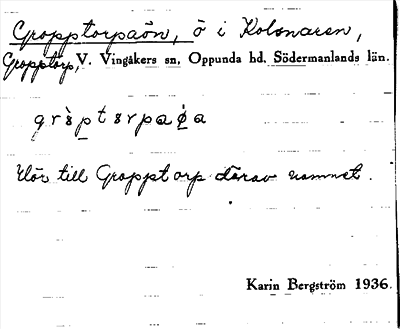 Gropptorpaön, ö i Kolsnaren,
Gropptorp, V. Vingåkers sn, Oppunda hd. Södermanlands län.
Hör till Gropptorp därav namnet.
Karin Bergström 1936.